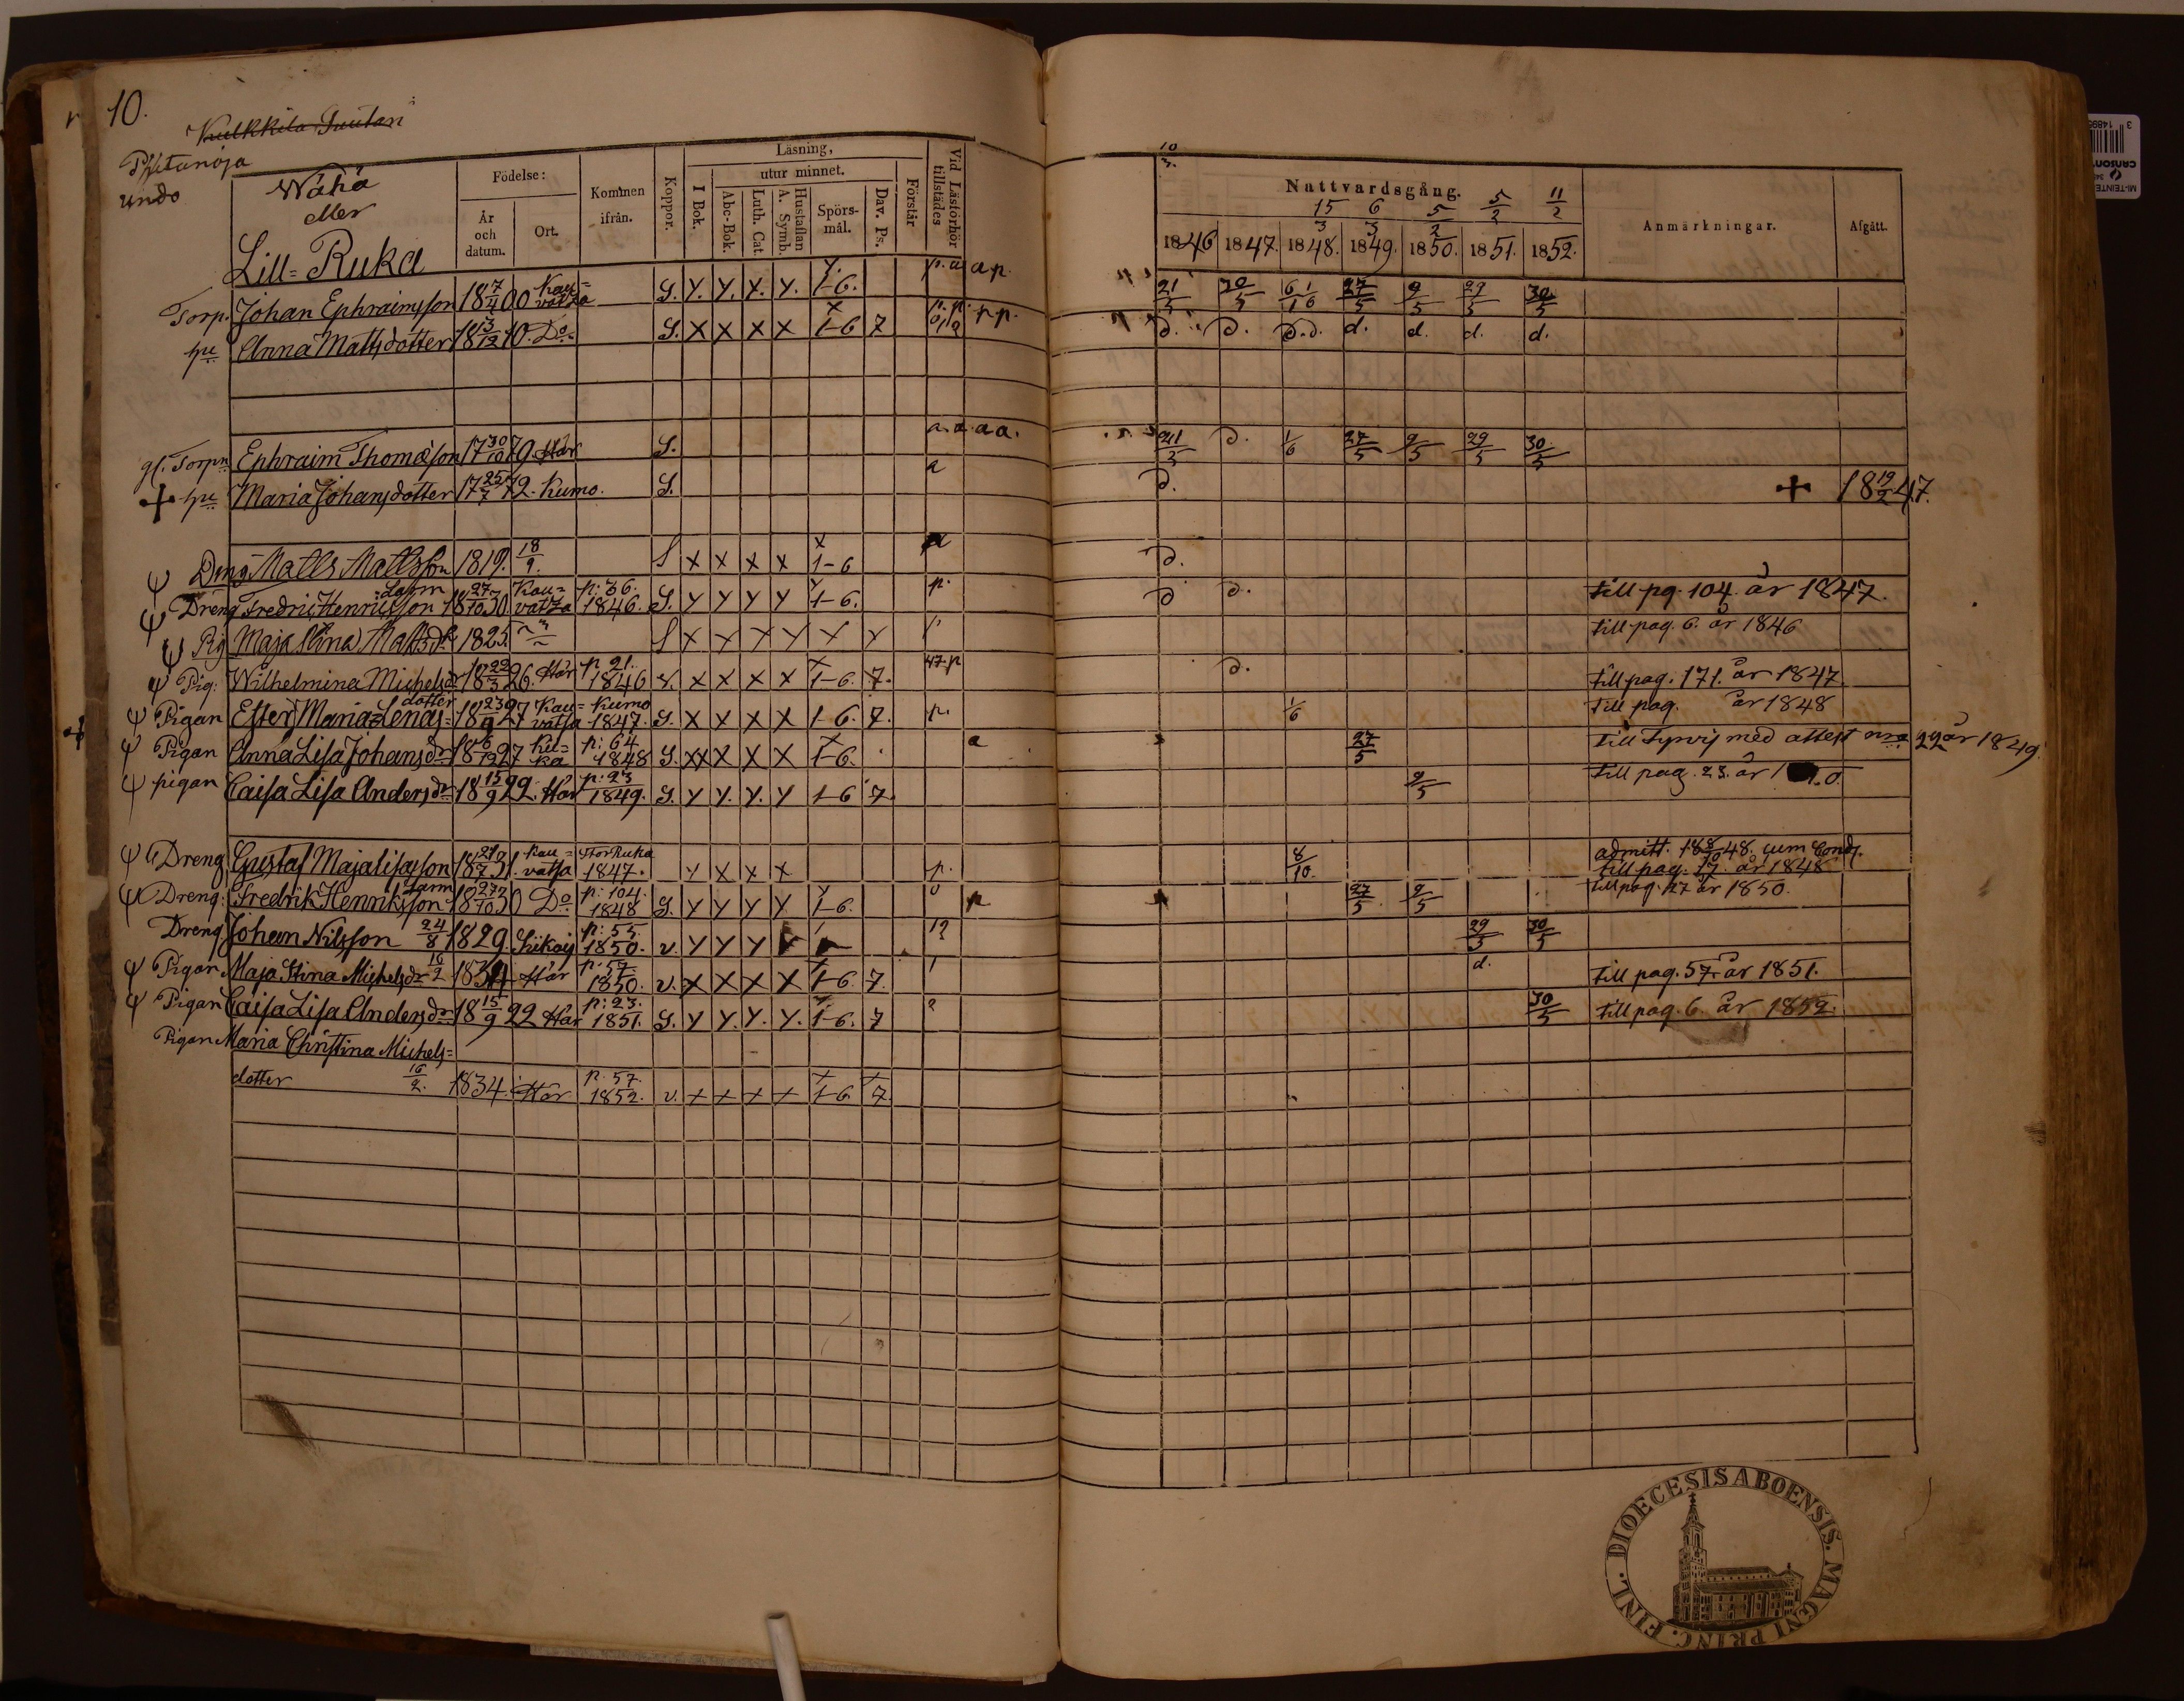 10.
Kulkkila
undo
Wähä
eller
Lill-Ruka
Födelse:
År och datum.
Ort.
Kommen ifrån.
Koppor.
Läsning,
I Bok.
utur minnet.
Abc-Bok.
Luth. Cat.
Hustaflan A. Symb.
Spörs-mål.
Dav. Ps.
Förstår
Vid Läsförhör tillstädes
10
Nattvardsgång.
15/3 6/3 5/2 5/2 11/2
1846 1847. 1848. 1849. 1850. 1851. 1852.
Anmärkningar.
Afgått.
Torp. Johan Ephraimsson 18 17/4 00 Kau=vatsa S. Y. Y. X. Y. 1-6. a p. 21/5 30/5 27/5 9/5 29/5 30/5
hu Anna Mattsdotter 18 13/12 10. Do S. X X X X 1-6 7 p.p. D. D. D.D. d. d. d. d.
gl. Torpn Ephraim Thomæson 17 30/10 79 Här S. a. a. a a. 21/5 D. 1/6 27/5 9/5 29/5 30/5
+ hu Maria Johansdotter 17 25/7 72. Kumo. S. a D. + 18 19/2 47.
Ψ Dreng Matts Mattsson 1819. 18/9. S X X X X 1-6 a D.
Ψ Dreng Fredric Henriksson Larm 18 27/10 30. Kau=vatsa p: 36. 1846. S. Y Y Y Y 1-6. p. D D. till pg. 104. år 1847.
Ψ Pig Maja Stina Mattsdr 1825 S X X X Y X Y till pag. 6. år 1846
Ψ Pig: Wilhelmina Michelsdr 18 22/3 26. Här p 21. 1846 X X X X 1-6. 7. 47.p D. till pag. 171. år 1847
Ψ Pigan Ester Maria Lenas=dotter 18 23/9 27 Kau=vatsa Kumo 1847. S. X X X X 1-6. 7. p. 1/6 till pag. år 1848
Ψ Pigan Anna Lisa Johansdr 18 6/12 27 Ku=ka p: 64. 1848 S. XX X X X 1-6. a 27/5 till Tyrvis med attest nro 22 år 1849.
Ψ pigan Caisa Lisa Andersdr 18 15/9 22. Här p. 23 1849. S. Y Y. Y. Y 1-6 7. 9/5 till pag. 23. år
Ψ Dreng Gustaf Majalisasson 18 21/7 31. Kau=vatsa Stor Ruka 1847. Y X X X p. 8/10. admitt. 18 8/10 48. cum Cond.
till pag. 17. år 1848
Ψ Dreng: Fredrik Henriksson Larm 18 27/10 30 Do p: 104. 1848 S. Y Y Y Y 1-6. p 27/5 9/5 till pag. 127 år 1850.
Dreng Johan Nilsson 24/8 1829. p: 55. 1850. v. Y Y Y 29/5 30/5
Ψ Pigan Maja Stina Michelsdr 16/2 1834 Här p. 57. 1850. v. X X X X 1-6. 7. d. till pag. 57. år 1851.
Ψ Pigan Caisa Lisa Andersdr 18 15/9 22 Här p: 23. 1851. S. Y Y. Y. Y. 1-6. 7 30/5 till pag. 6. år 1852.
Pigan Maria Christina Michels=
dotter 16/2. 1834. Här p. 57. 1852. v. X X X X 1-6 7.
DIOECESIS ABOENSIS. MAGNI PRINC. FINL.